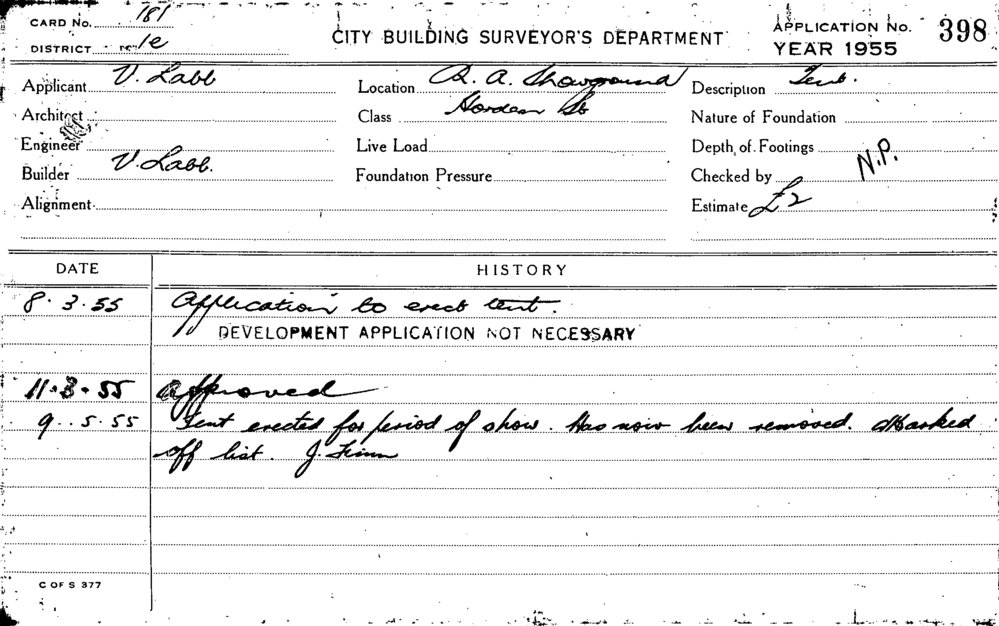 CARD No. 181
DISTRICT 1e
CITY BUILDING SURVEYOR'S DEPARTMENT
APPLICATION No. 398
YEAR 1955
Applicant V. Labb
Location R. A. Showground
Description Tent.
Architect
Class Horden St
Nature of Foundation
Engineer
Live Load
Depth of Footings
Builder V. Labb.
Foundation Pressure
Checked by N.P.
Alignment
Estimate £2
DATE
HISTORY
8.3.55 Application to erect tent.
DEVELOPMENT APPLICATION NOT NECESSARY
11.3.55 Approved
9.5.55 Tent erected for period of show. Has now been removed. Marked
off list. J. Finn
C OF S 377